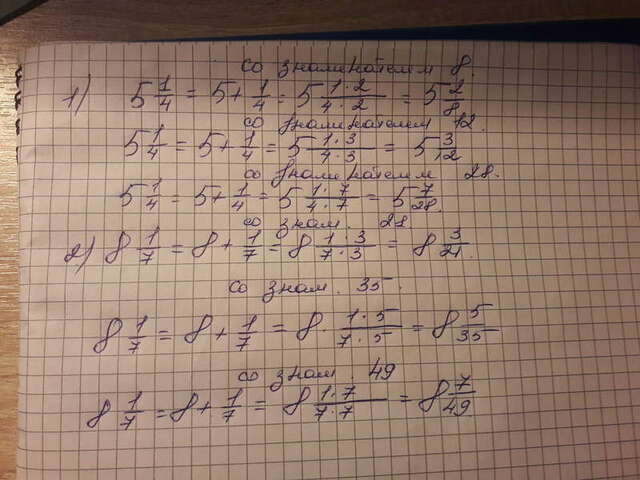 со знаменателем 8.
1) 5 1/4 = 5 + 1/4 = 5 1·2/4·2 = 5 2/8
со знаменателем 12.
5 1/4 = 5 + 1/4 = 5 1·3/4·3 = 5 3/12
со знаменателем 28.
5 1/4 = 5 + 1/4 = 5 1·7/4·7 = 5 7/28.
со знам. 21
2) 8 1/7 = 8 + 1/7 = 8 1·3/7·3 = 8 3/21.
со знам. 35.
8 1/7 = 8 + 1/7 = 8· 1·5/7·5 = 8 5/35
со знам. 49
8 1/7 = 8 + 1/7 = 8 1·7/7·7 = 8 7/49